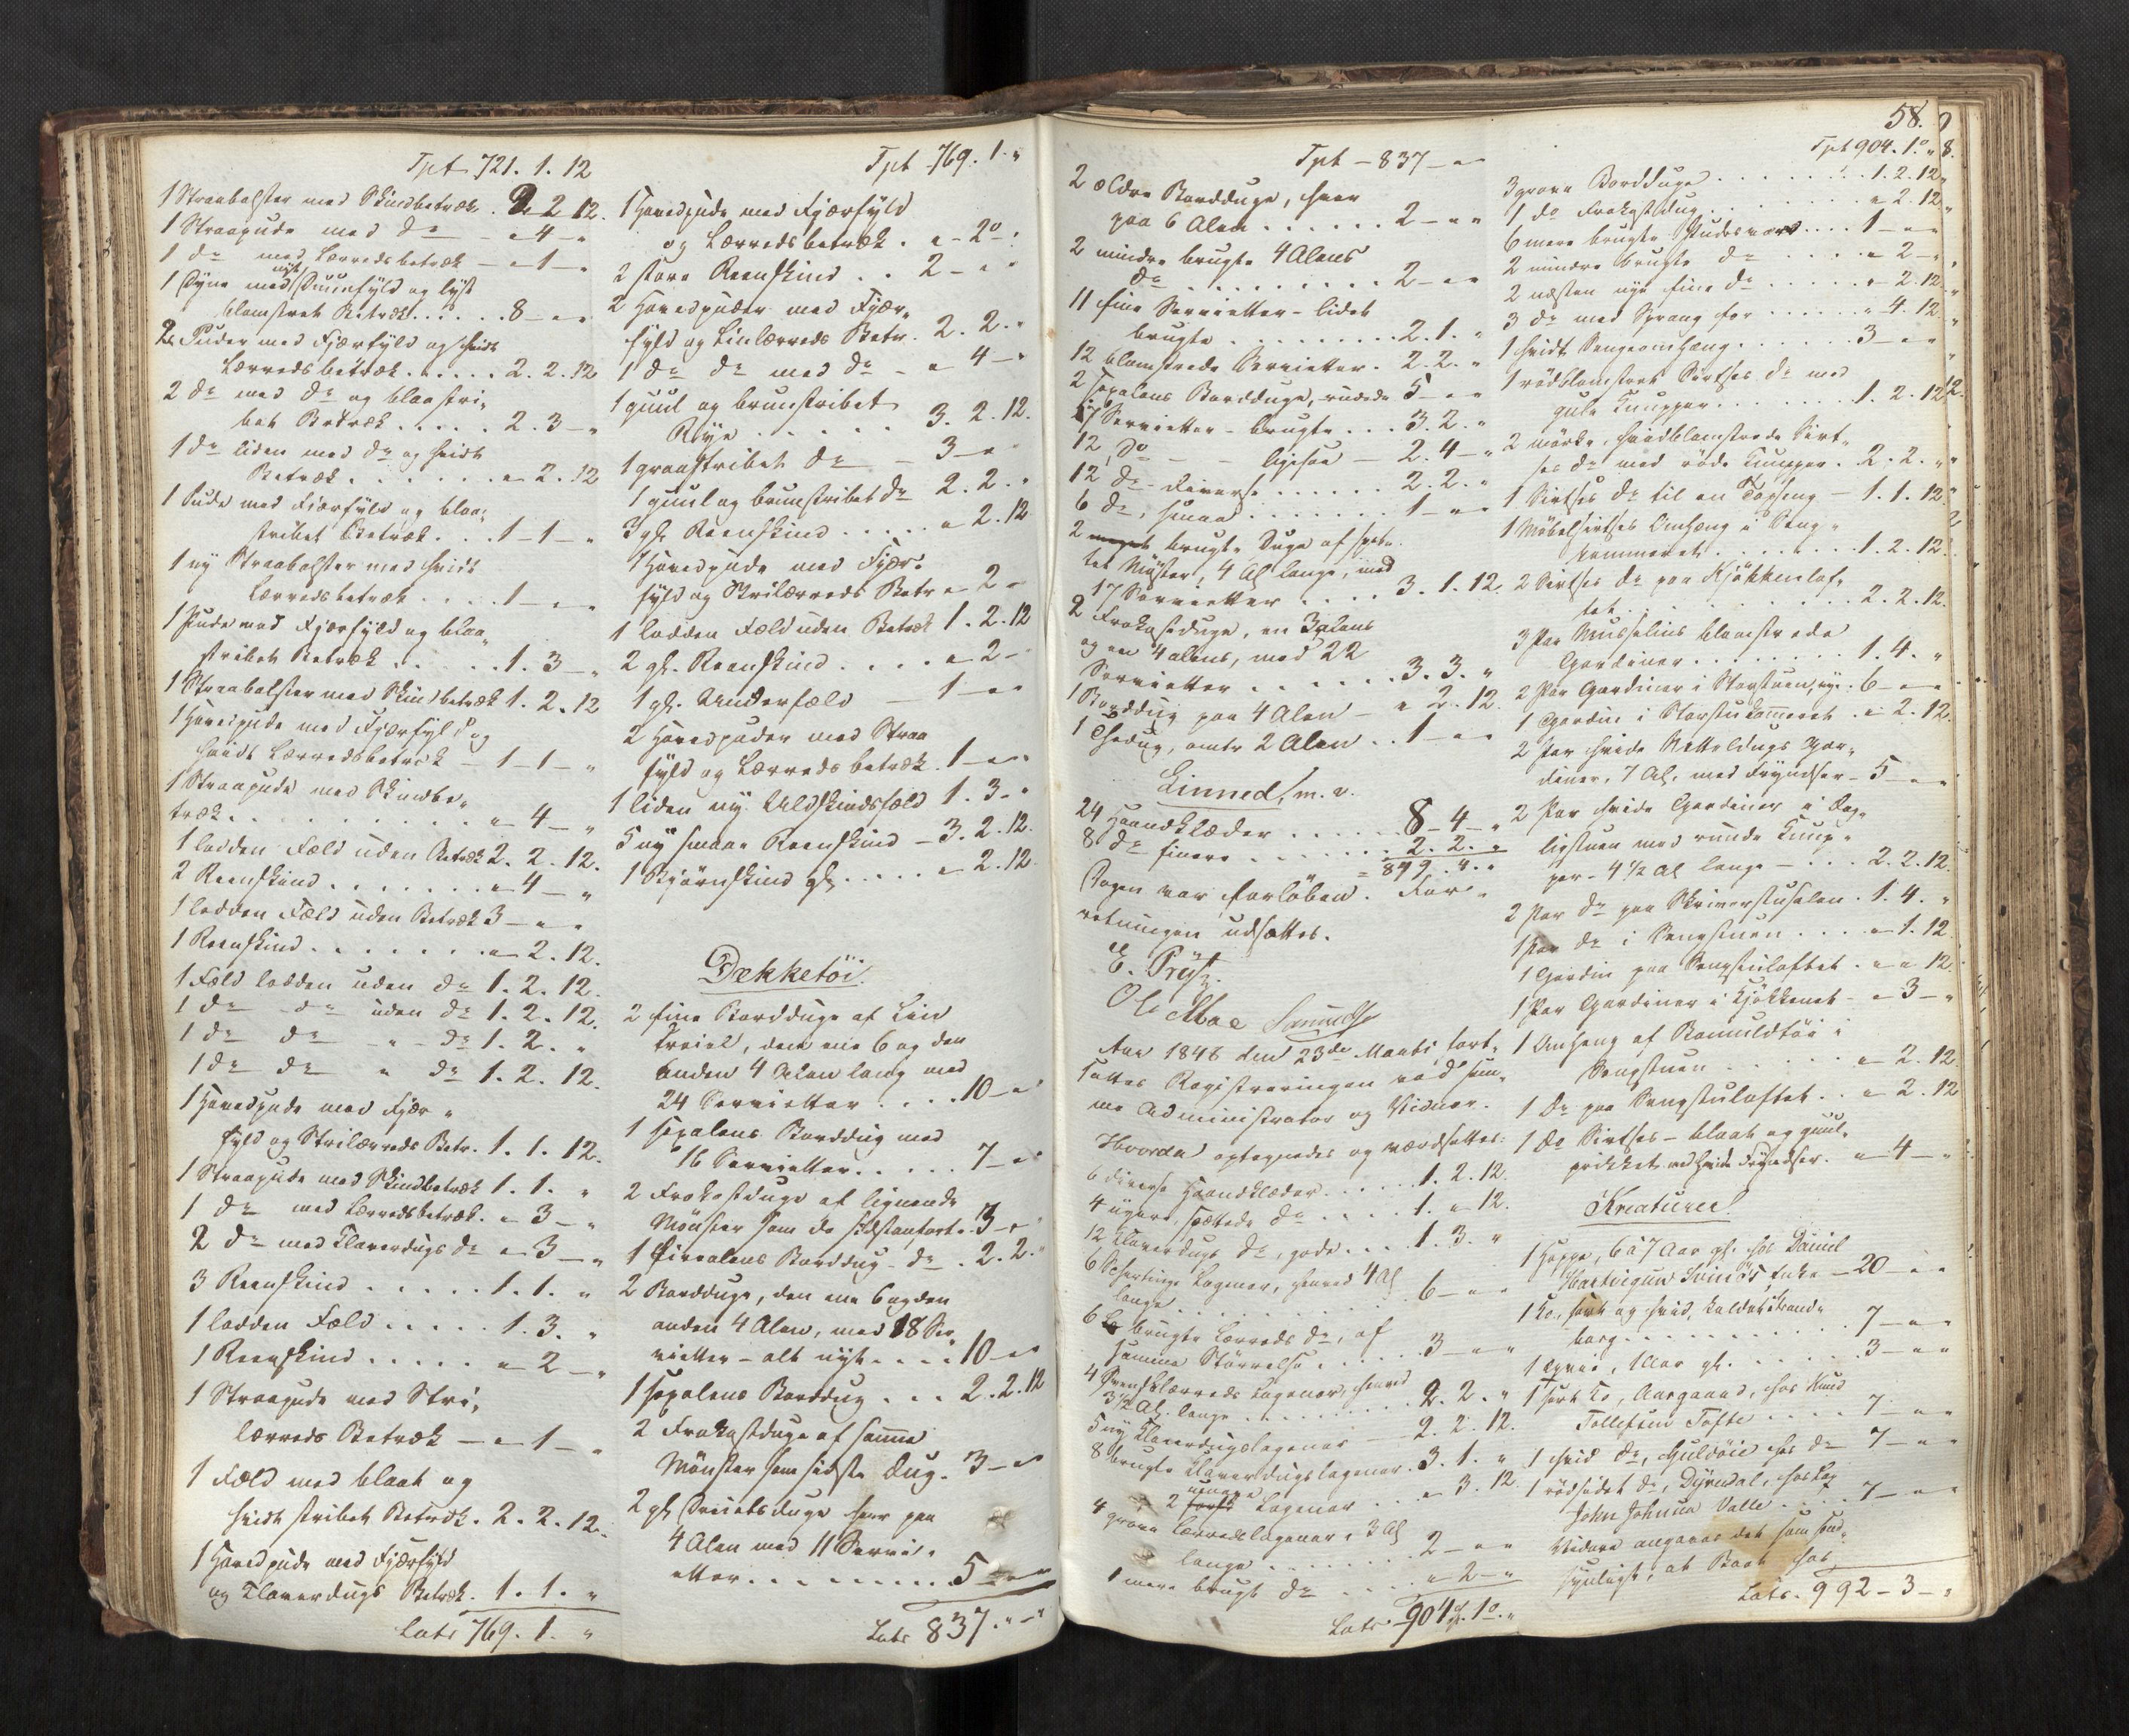 Tpt 721. 1. 12
1 Straabolster med Skindbetræk . 2 2 12.
1 Straapude med do - " 4 - "
1 do med Lærredsbetræk - " 1 - "
1 Dyne med nyt Duunfyld og lyst
blomstret Betræk . . . . . 8 - " "
2 Puder med Fjærfyld og hvidt
Lærredsbetræk . . . . . 2. 2. 12
2 do med do og blaastri-
bet Betræk . . . . . 2. 3 - "
1 do liden med do og hvidt
Betræk . . . . . . " 2. 12
1 Pude med Fjærfyld og blaa-
stribet Betræk . . . 1 - 1 - "
1 ny Straabolster med hvidt
Lærredsbetræk . . . . 1 - " "
1 Pude med Fjærfyld og blaa-
stribet Betræk . . . . . 1. 3 - "
1 Straabolster med Skindbetræk 1. 2. 12
1 Hovedpude med Fjærfyld og
hvidt Lærredsbetræk - 1 - 1 - "
1 Straapude med Skindbe-
træk . . . . . . . . . " 4 - "
1 lodden Fæld uden Betræk 2. 2. 12.
2 Reenskind . . . . . . " 4 - "
1 lodden Fæld uden Betræk 3 - " "
1 Reenskind . . . . . . " 2. 12.
1 Fæld lodden uden do 1. 2. 12.
1 do do uden do 1. 2. 12.
1 do do - " - do 1. 2. "
1 do do " do 1. 2. 12.
1 Hovedpude med Fjær-
fyld og Strilærreds Betr. 1. 1. 12.
1 Straapude med Skindbetræk 1. 1. "
1 do med Lærredsbetræk. " 3 - "
2 do med Klaverdugs do " 3 - "
3 Reenskind . . . . . 1. 1. "
1 lodden Fæld . . . . . 1. 3. "
1 Reenskind . . . . . " 2 - "
1 Straapude med Stri-
lærreds Betræk - " 1 - "
1 Fæld med blaat og
hvidt stribet Betræk. 2. 2. 12.
1 Hovedpude med Fjærfyld
og Klaverdugs Betræk. 1. 1. "
Lats 769. 1. "
Tpt 769. 1. "
1 Hovedpude med Fjærfyld
og Lærredsbetræk . " - 2 - "
2 store Reenskind . . 2 - " "
2 Hovedpuder med Fjær-
fyld og Linlærreds Betr. 2. 2. "
1 do do med do - " 4 - "
1 guul og bruunstribet
Rye . . . . . . 3. 2. 12.
1 graastribet do - 3 - "
1 guul og bruunstribet do 2. 2. "
3 gl. Reenskind . . . . " 2. 12
1 Hovedpude med Fjær-
fyld og Strilærreds Betr " 2 -
1 lodden Fæld uden Betræk 1. 2. 12
2 gl. Reenskind . . . . " 2 -
1 gl. Underfæld - 1 - " "
2 Hovedpuder med Straa
fyld og Lærredsbetræk. 1 - " "
1 liden ny Uldskindsfæld 1. 3. "
5 ny smaae Reenskind - 3. 2. 12.
1 Bjørnskind gl. . . . . " 2. 12
Dækketöi.
2 fine Bordduge af Lin
Dreiel, den ene 6 og den
anden 4 Alen lang med
24 Servietter . . . . 10 - "
1 sexalens Borddug med
16 Servietter . . . . . 7 - "
2 Frokostduge af lignende
Mønster som de sidstanførte . 3 - "
1 firealens Borddug - do . 2. 2. "
2 Bordduge, den ene 6 og den
anden 4 Alen, med 18 Ser-
vietter - alt nyt . . . . 10 - "
1 sexalens Borddug . . . 2. 2. 12
2 Frokostduge af samme
Mønster som sidste Dug. 3 - "
2 gl. Dreielsduge hver paa
4 Alen med 11 Servi-
etter . . . . . . . . 5 - " "
Lats 837. " - "
Tpt - 837 - " "
2 ældre Bordduge, hver
paa 6 Alen . . . . . 2 - " "
2 mindre brugte 4 Alens
do . . . . . . . . . 2 - " "
11 fine Servietter - lidet
brugte . . . . . . . . 2. 1. "
12 blomstrede Servietter. 2. 2. "
2 sexalens Bordduge, rudede 5 - " "
17 Servietter - brugte . . . 3. 2. "
12 do - - ligesaa - 2. 4 - "
12 do - diverse . . . . . 2. 2. "
6 do, smaa . . . . . . 1 - " "
2 meget brugte Duge af
tet Mønster, 4 Al lange, med
17 Servietter . . . . 3. 1. 12.
2 Frokostduge, en 3 alens
og en 4 alens, med 22
Servietter . . . . . . 3. 3. "
1 Borddug paa 4 Alen - " 2. 12.
1 Thedug, omtr 2 Alen . . 1 - " "
Linned, m. v.
24 Haandklæder . . . . . 8 - 4 - "
8 do finere . . . . . . . 2. 2. "
= 879. 4. "
Dagen var forløben. For-
retningen udsattes.
E. Prÿtz.
Ole Moe Samuels
Aar 1848 den 23de Marts fort-
sattes Registreringen ved sam-
me Administrator og Vidner.
Hvorda optegnedes og værdsattes:
6 diverse Haandklæder . . . . . 1. 2. 12.
4 nyere, spættede do . . . . 1. " 12.
12 Klaverdugs do, gode . . . . 1. 3. "
6 Schertings Lagener, hvert 4 Al
lange . . . . . . . . . 6 - " "
6 brugte Lærreds do, af
samme Størrelse . . . . . 3 - " "
4 Svensklærreds Lagener, hvert
3½ Al. lange . . . . . . . 2. 2. "
5 ny Klaverdugslagener - 2. 2. 12.
8 brugte Klaverdugslagener. 3. 1. "
2 Lagener . . . " 3. 12.
4 grove Lærredslagener, 3 Al
lange . . . . . . . . 2 - " "
1 mere brugt do . . . . . " 2 - "
Lats. 904. 1. "
58.
Tpt 904. 1. "
3 grove Bordduge . . . . . . 1. 2. 12
1 do Frokostdug . . . . . . " 2. 12.
6 mere brugte Pudevaar . . . . 1 - " "
2 mindre brugte do . . . . " 2 - "
2 næsten nye fine do . . . . . " 2. 12.
3 do med Sprang for . . . . . " 4. 12.
1 hvidt Sengeomhæng . . . . . . 3 - " "
1 rødblomstret Sirtses do med
gule Knupper . . . . . . . 1. 2. 12
2 mørke, hvidblomstrede Sirt-
ses do med røde Knupper . 2. 2. "
1 Sirtses do til en Topseng - 1. 1. 12.
1 Møbelsirtses Omhæng i Seng-
kammeret . . . . . . . 1. 2. 12.
2 Sirtses do paa Kjøkkenlof-
tet . . . . . . . . . . 2. 2. 12.
3 Par Musselins blomstrede
Gardiner . . . . . . . . 1. 4. "
2 Par Gardiner i Storstuen, nye . 6 - " "
1 Gardin i Storstukameret . " 2. 12.
2 Par hvide Netteldugs Gar-
diner, 7 Al. med Fryndser - 5 - " "
2 Par hvide Gardiner i Dag-
ligstuen med runde Knup-
per - 4½ Al lange - . . . 2. 2. 12.
2 Par do paa Skriverstusalen . 1. 4. "
1 Par do i Sengstuen . . . " 1. 12
1 Gardin paa Sengstuloftet . " " 12
1 Par Gardiner i Kjøkkenet - " 3 - "
1 Omhæng af Bomuldtøi i
Sengstuen . . . . . . " 2. 12.
1 do paa Sengstuloftet . . " 2. 12
1 do Sirtses - blaat og guul-
prikket med hvide Fryndser. " 4 - "
Kreaturer
1 Hoppe, 6 à 7 Aar gl. hos Daniel
Enke - 20 - " "
1 Ko, sort og hvid, kaldet Strand-
borg . . . . . . . . . . 7 - " "
1 Qvie, 1 Aar gl. . . . . . . 3 - " "
1 sort Ko, Aargaas, hos Knud
Tollefsen Tofte . . . . 7 - " "
1 hvid do, Guldöie hos do 7 - " "
1 rødsidet do, Dyredal, hos
John Johnsen Valle . . . . 7 - " "
Videre angaves det som
synligt, at Boet har
Lats. 992 - 3 - "